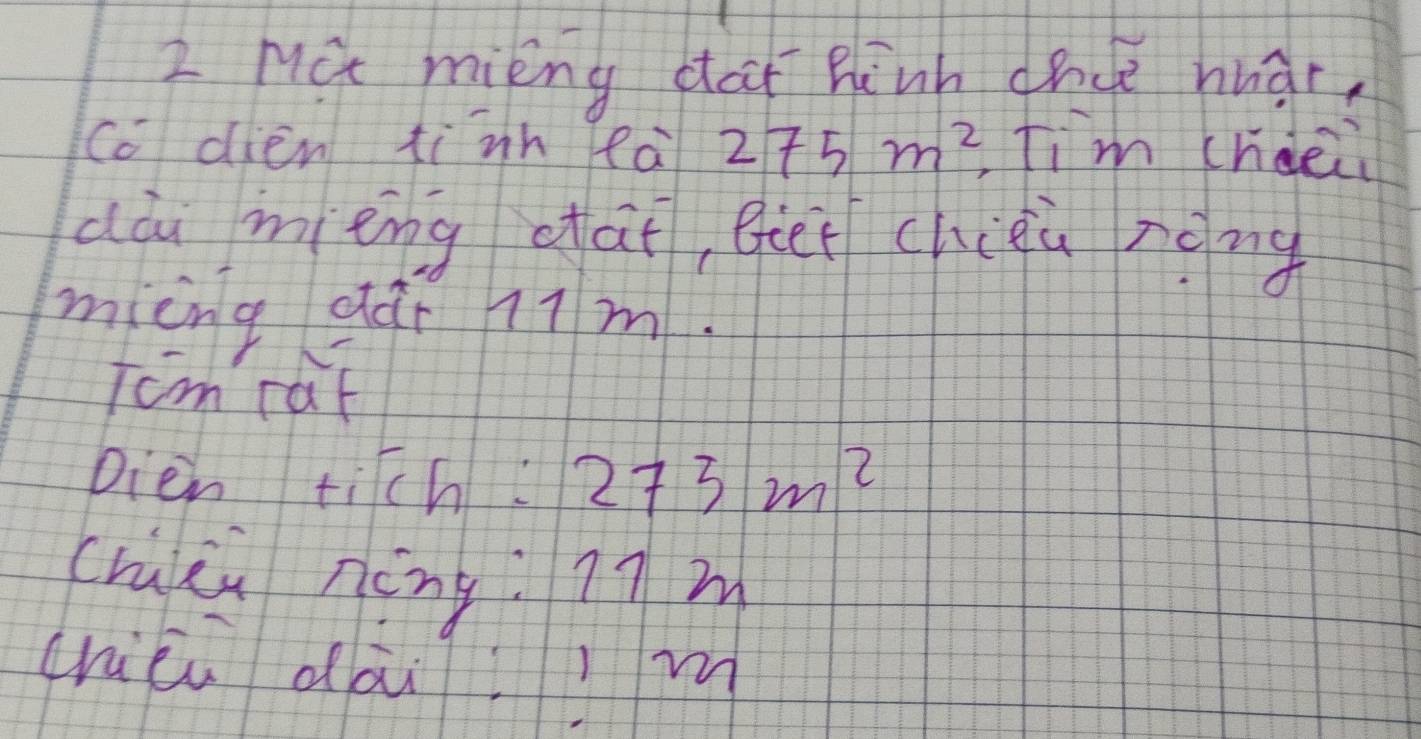 2 Một miếng đất hình chữ nhật,
Có diện tính là 275 m², Tìm chiều
dài miếng đất, biết chiều rộng
miếng đất 11 m.
Tóm tắt
Diện tích : 275 m²
Chiều rộng : 11 m
Chiều dài : ? m